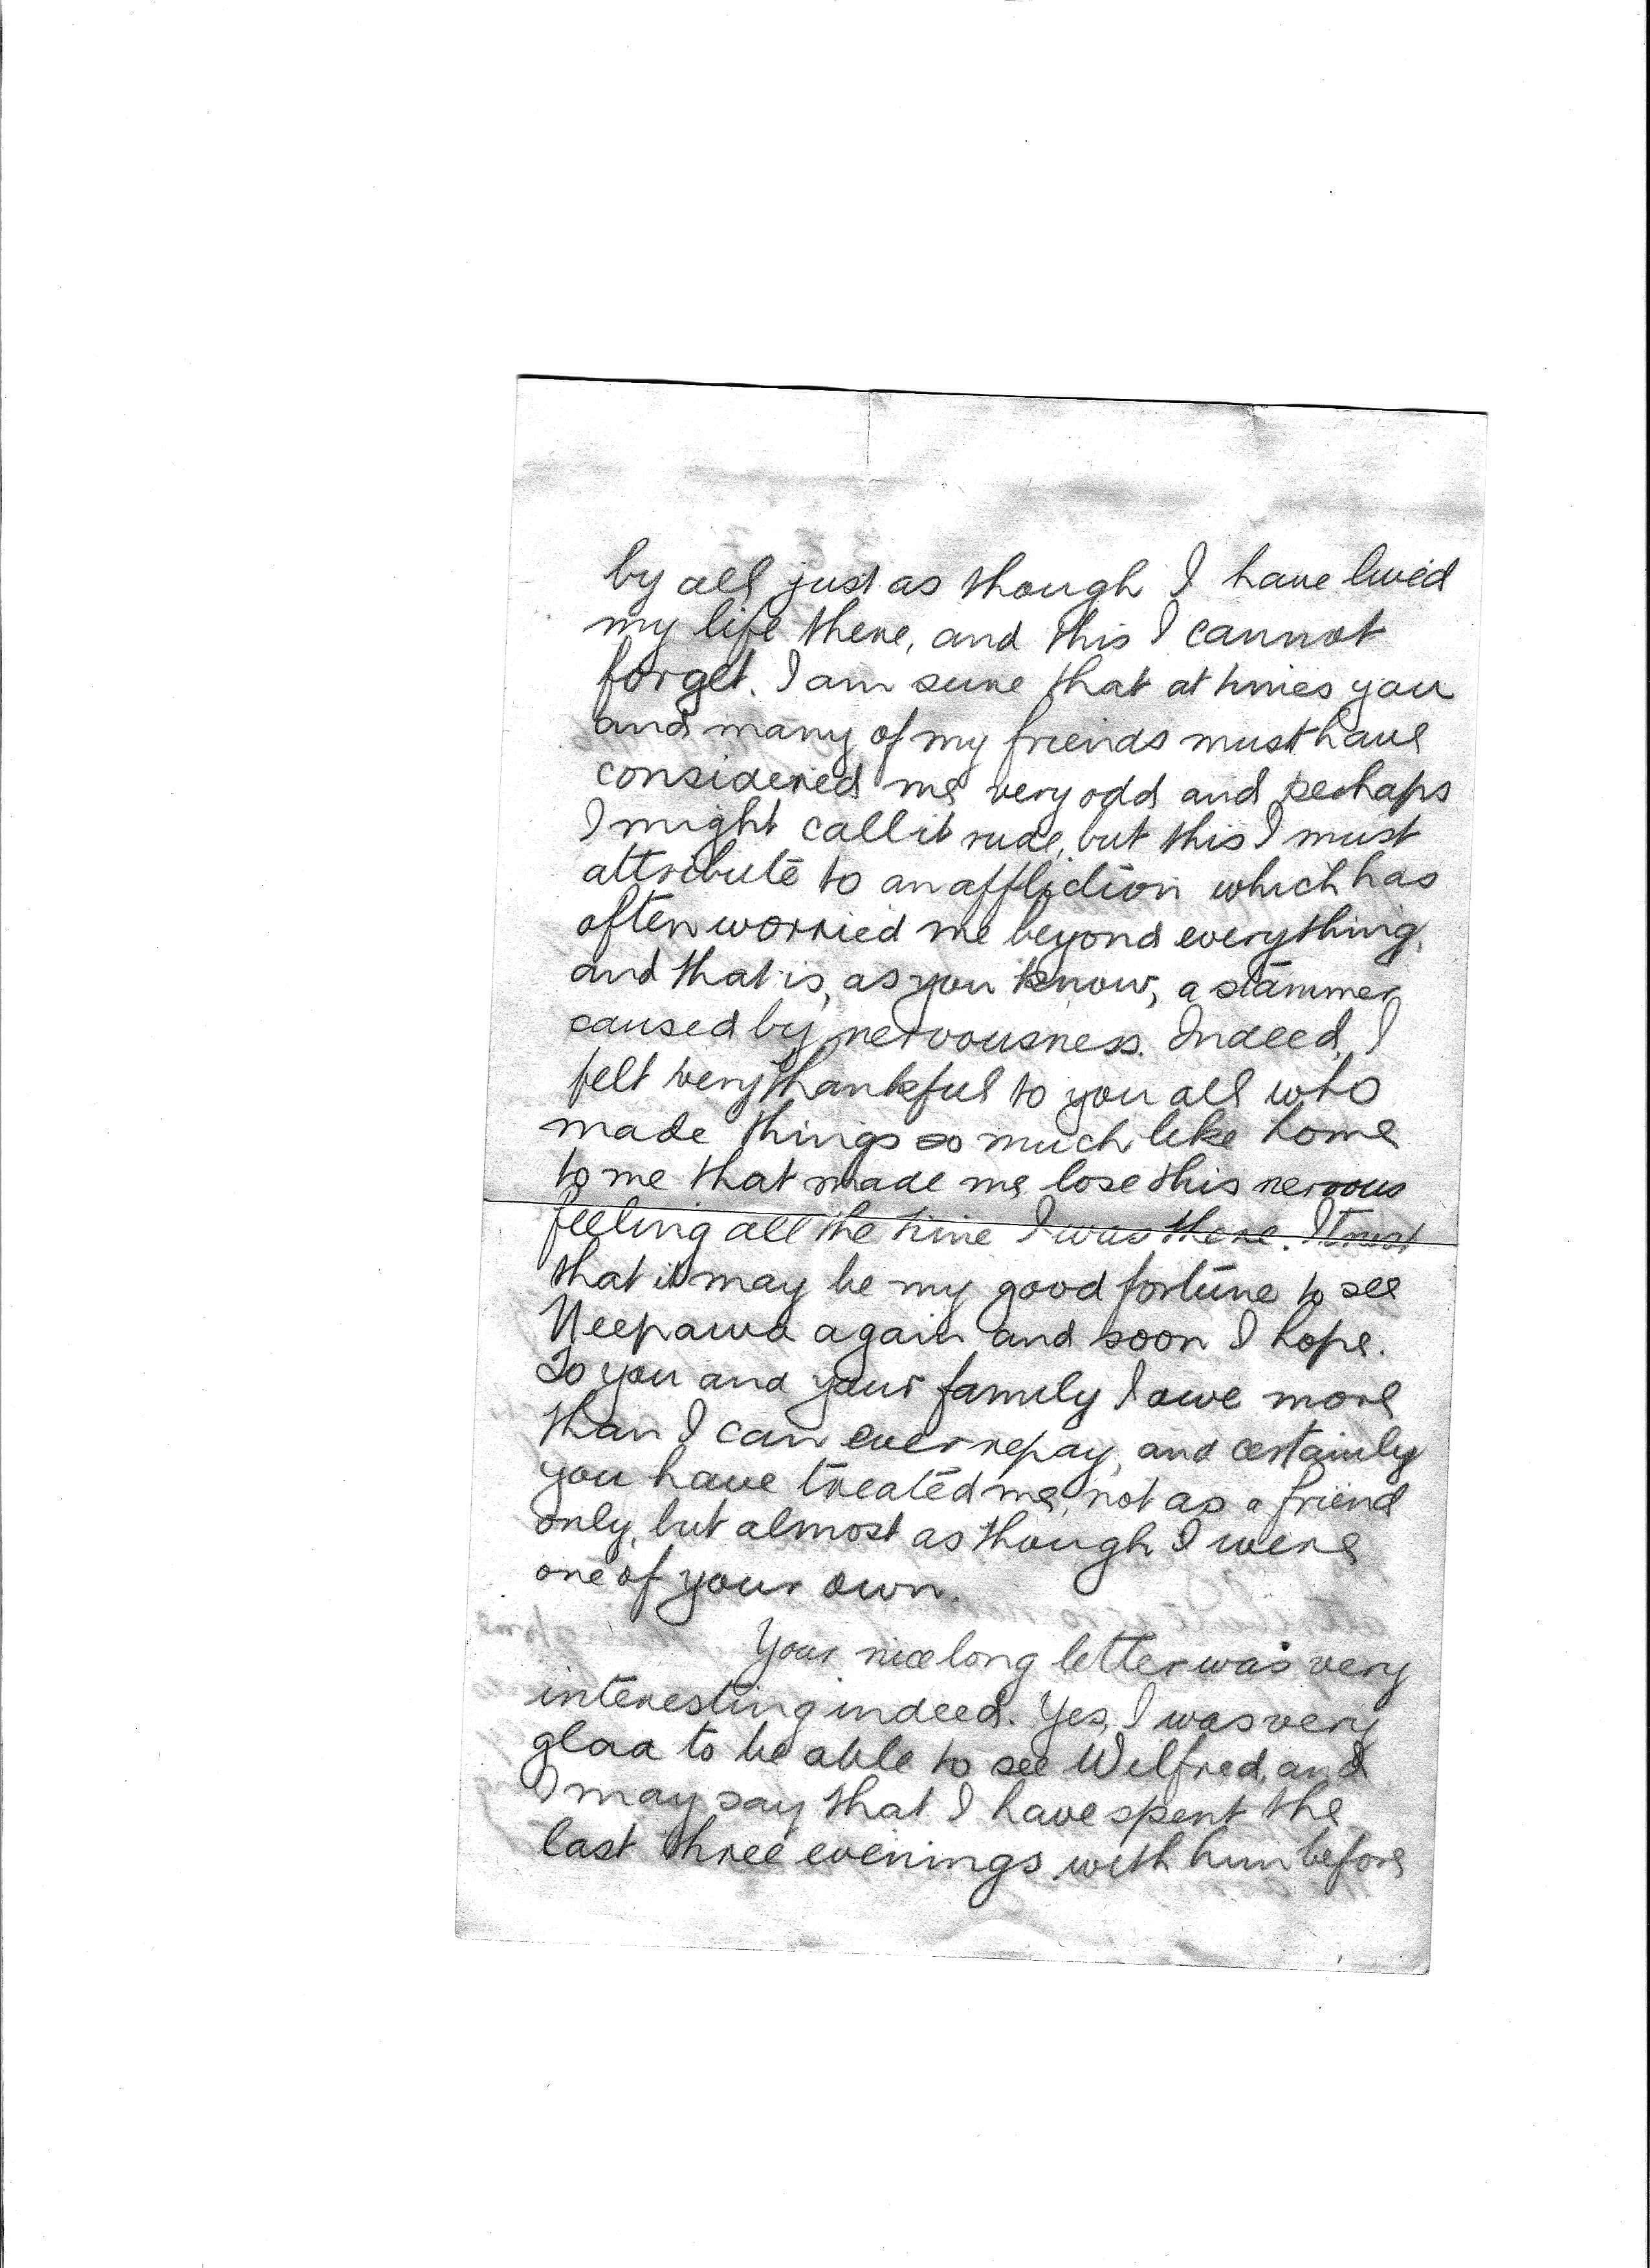 by all just as though I have lived
my life there, and this I cannot
forget. I am sure that at times you
and many of my friends must have
considered me very odd and perhaps
I might call it rude, but this I must
attribute to an affliction which has
often worried me beyond everything,
and that is, as you know, a stammer
caused by nervousness. Indeed, I
felt very thankful to you all who
made things so much like home
to me that made me lose this nervous
feeling all the time I was there. I trust
that it may be my good fortune to see
Neepawa again and soon I hope.
To you and your family I owe more
than I can ever repay, and certainly
you have treated me, not as a friend
only, but almost as though I were
one of your own.
Your nice long letter was very
interesting indeed. Yes, I was very
glad to be able to see Wilfred, and
I may say that I have spent the
last three evenings with him before